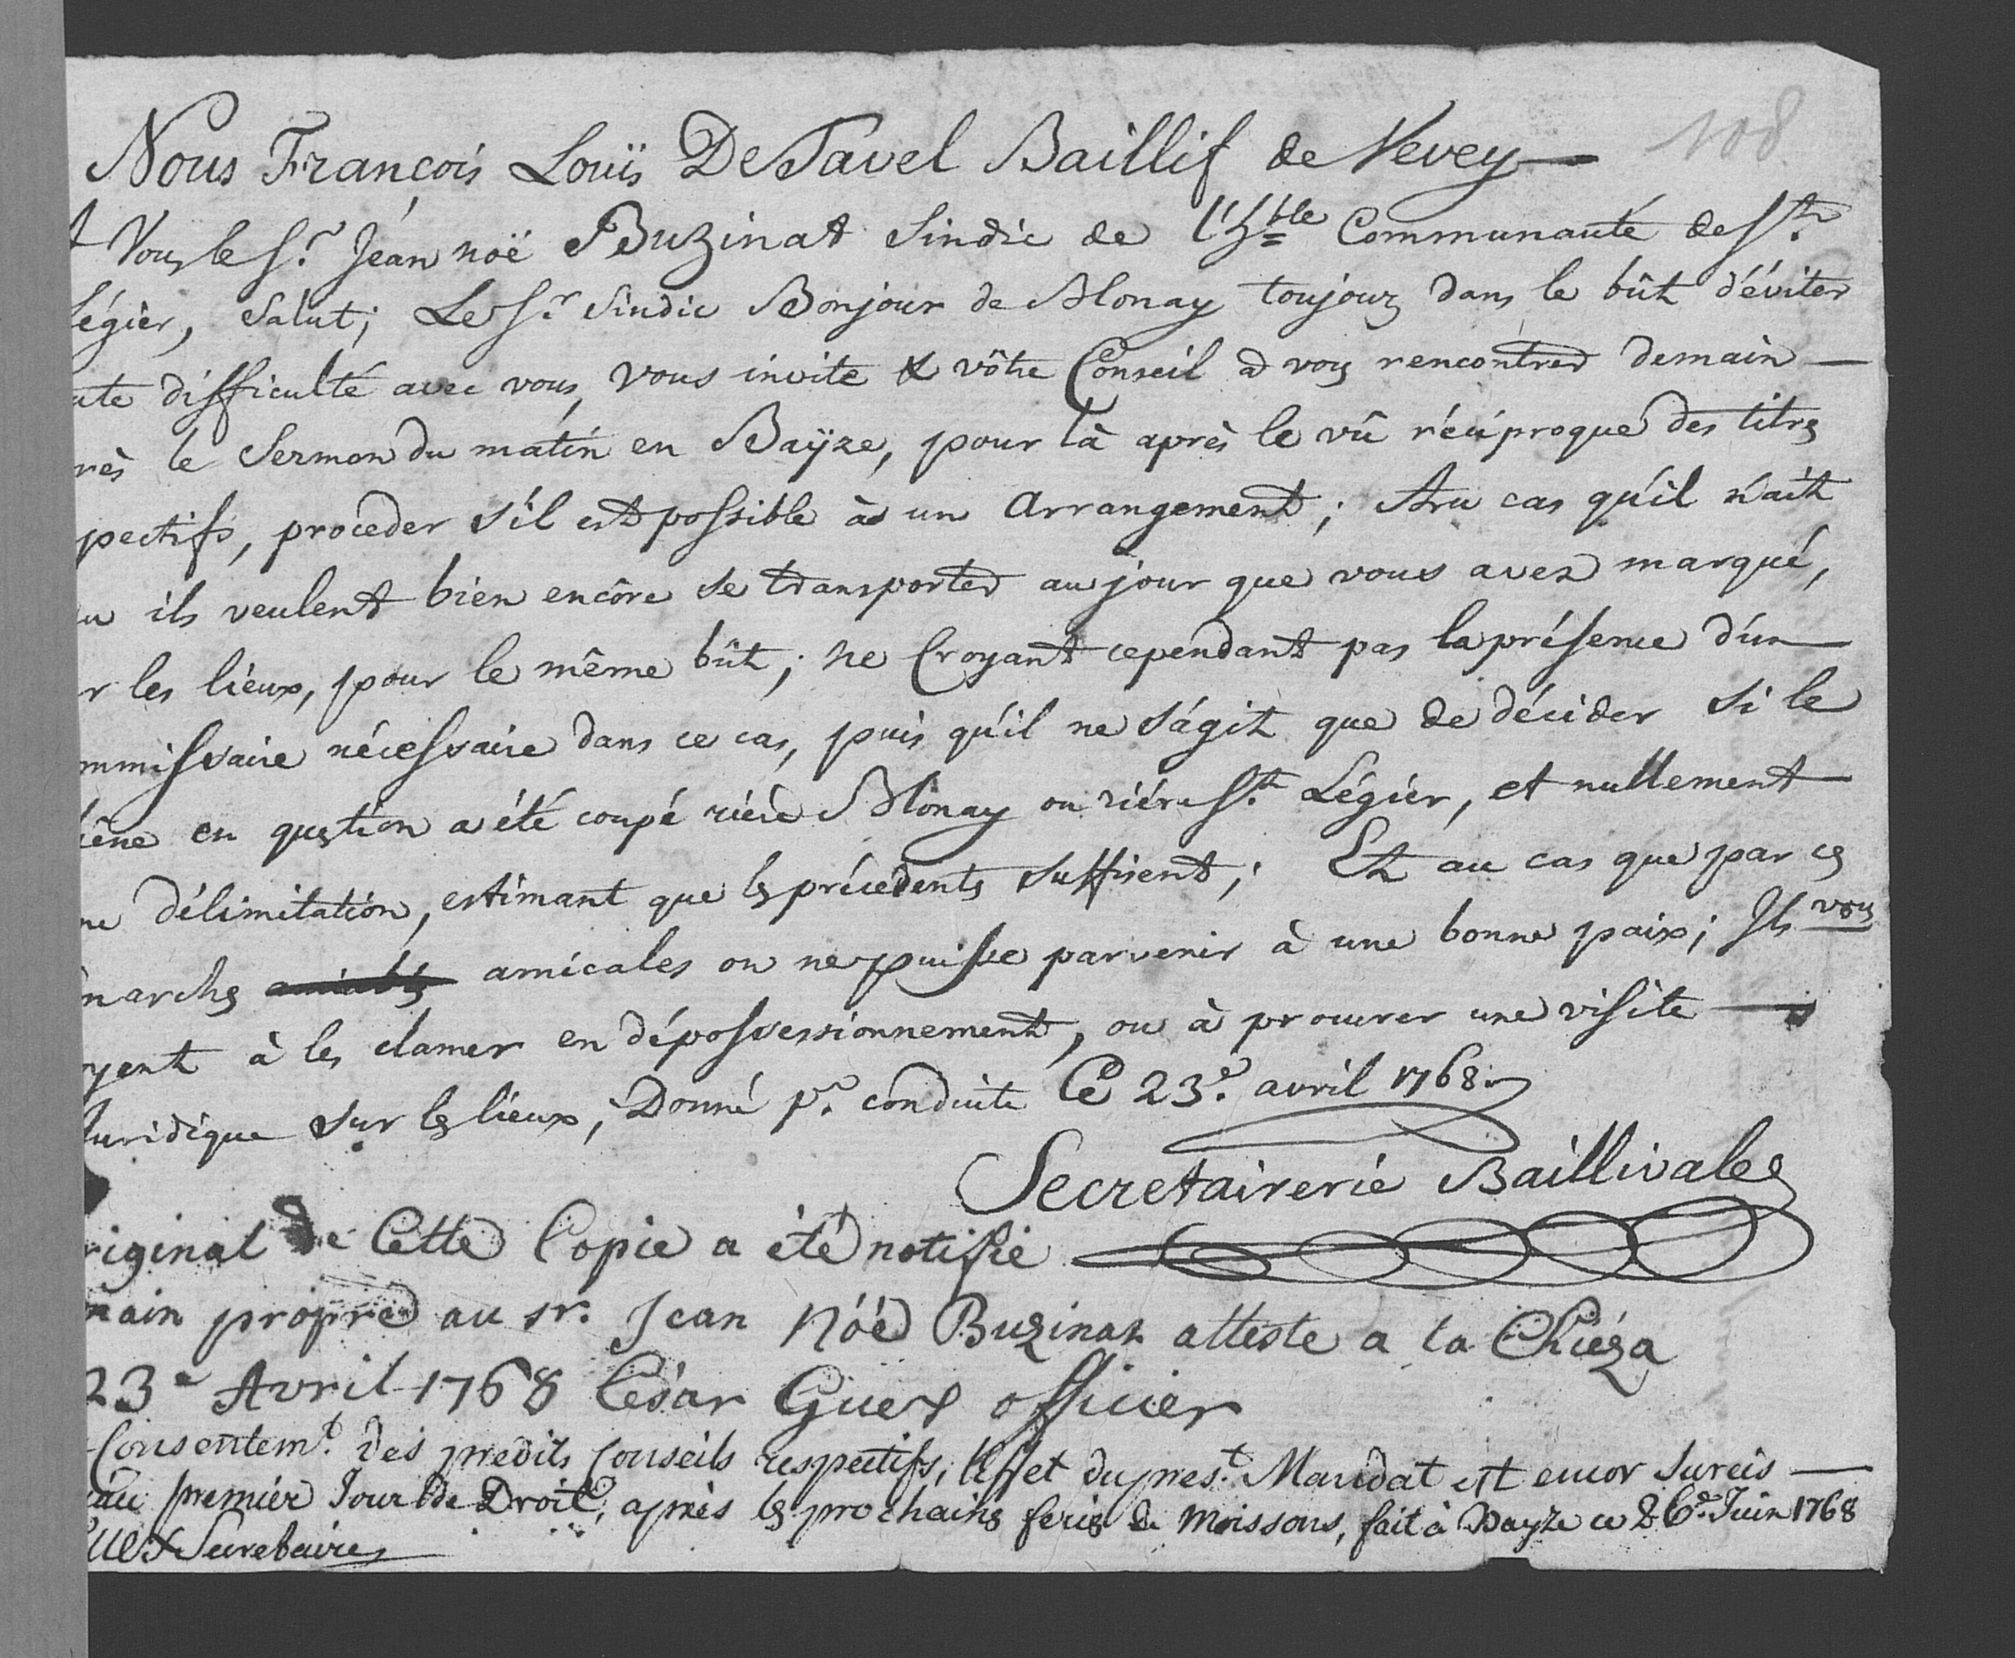 108
Nous François Louïs De Tavel Baillif de Vevey
A Vous le Sr. Jean noë Buzinat Sindic de l'hble Communauté de St.
Légier, Salut; Le Sr. Sindic Bonjour de Blonay toujours dans le bût d'éviter
ute difficulté avec vous, vous invite & vôtre Conseil à vous rencontrer demain
rès le Sermon du matin en Bayze, pour là après le vû réciproque des titres
pectifs, proceder s'il est possible à un arrangement; Au cas qu'il n'ait
u ils veulent bien encôre se transporter au jour que vous avez marqué,
r les lieux, pour le même bût; ne Croyant cependant pas la présence d'un
mmissaire nécessaire dans ce cas, puis qu'il ne s'agit que de décider si le
hêne en question a été coupé riére Blonay ou riére St. Légier, et nullement
ne délimitation, estimant que les précedents suffisent; Et au cas que par ces
marches amiables amicales on ne puisse parvenir à une bonne paix; Ils vous
yent à les clamer en dépossessionnement, ou à procurer une visite
Juridique sur les lieux; Donné pr. conduite Ce 23e. avril 1768.
Secretairerie Baillivale
riginal de Cette Copie a été notifié
main propre au sr. Jean Nöé Buzinat atteste a la Chiéza
23e Avril 1768 César Guex officier
Consentemt. des predits Conseils respectifs, l'effet du prest. Mandat est encor surcis
au premier Jour de Droit, après les prochaines feries de Moissons, fait à Bayze ce 26e. Juin 1768
uex Secretaire